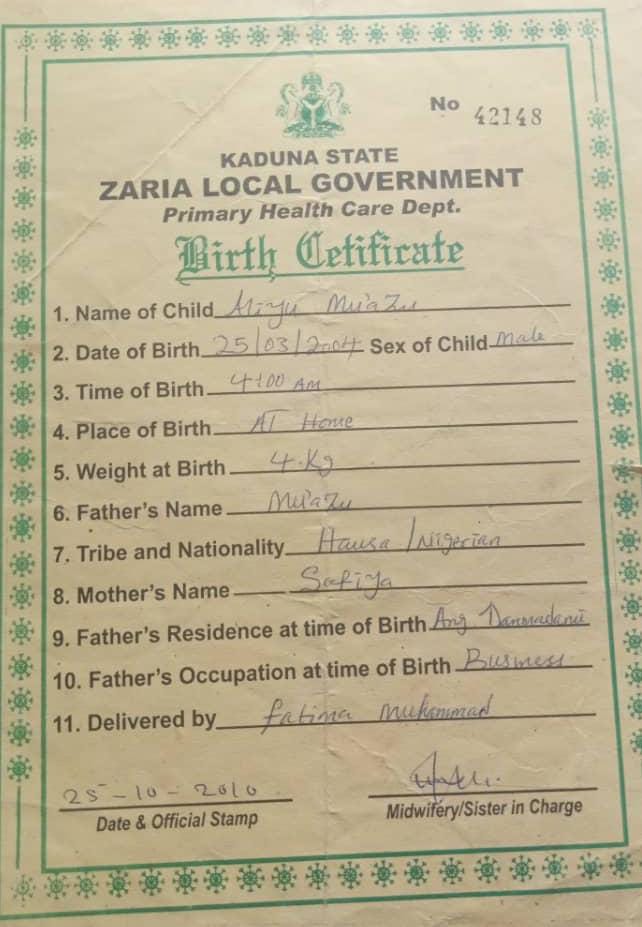 No 42148
KADUNA STATE
ZARIA LOCAL GOVERNMENT
Primary Health Care Dept.
Birth Cetificate
1. Name of Child Aliyu Mu'azu
2. Date of Birth 25/03/2004 Sex of Child Male
3. Time of Birth 4:00 AM
4. Place of Birth AT Home
5. Weight at Birth 4.Kg
6. Father's Name Mu'azu
7. Tribe and Nationality Hausa / Nigerian
8. Mother's Name Safiya
9. Father's Residence at time of Birth Ang
10. Father's Occupation at time of Birth Business
11. Delivered by fatima muhammad
25-10-2010
Date & Official Stamp
Midwifery/Sister in Charge